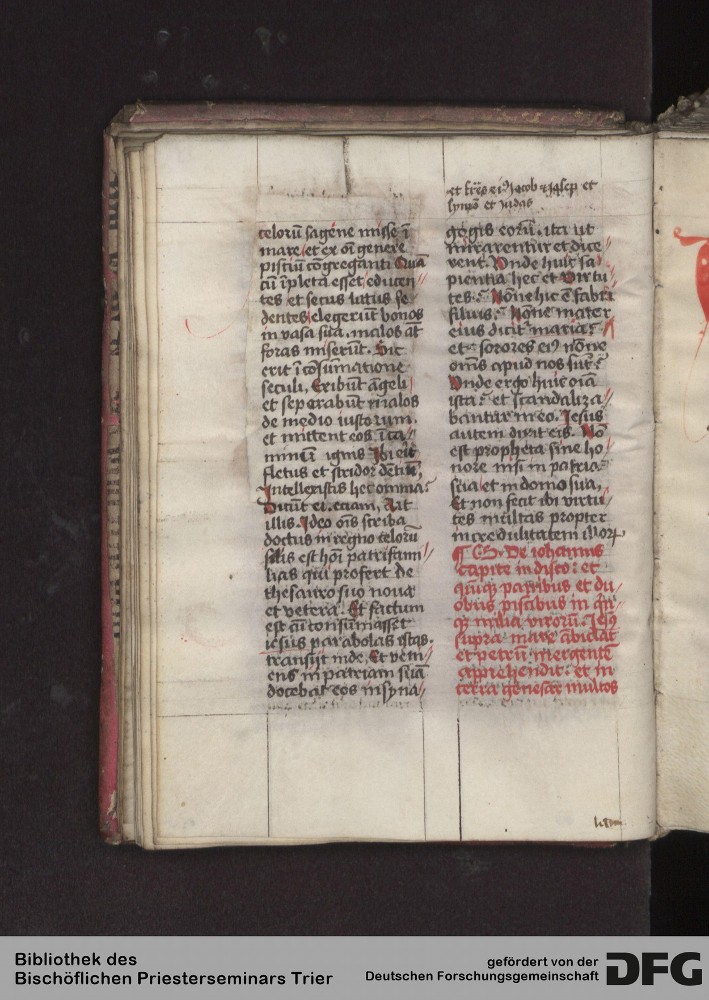 celorū sagene misse ī
mare et ex oī genere
pisciū cōgreganti Quā
cū īpleta esset educen
tes et secus littus se
dentes elegerūt bonos
in vasa sua. malos aūt
foras miserūt. Sic
erit ī cōsūmatione
seculi, Exibūt āgeli
et separabūt malos
de medio iustorum.
et mittent eos ī ca
minū ignis Ibi erit
fletus et stridor dētiū,
Intellexistis hec omnia?
Dicūt ei. etiam, Ait
illis. Ideo oīs scriba
doctus in regno celorū
silis est hoī patrifami
lias qui profert de
thesauro suo noua
et vetera. Et factum
est cū consumasset
iesus parabolas istas.
transijt inde, Et veni
ens in patriam suā
docebat eos in syna
et frēs eiꝰ Jacob et Joseph et
symō et Judas
gogis eorū. ita ut
mirarentur et dice
rent. Vnde huic sa
pientia hec et Virtu
tes? Nōne hic ē fabri
filius? Nōne mater
eius dicit maria?
et sorores eiꝰ nōne
om̄s apud nos sūt?
Vnde ergo huic oīa
ista? et scandaliza
bantur in eo. Jesus
autem dixit eis. Nō
est propheta sine ho
nore nisi in patria
sua et in domo sua,
Et non fecit ibi virtu
tes multas propter
incredulitatem illorꝝ
De iohannis
capite in disco: et
qīnqꝫ panibus et du
obus piscibus in qīn
qꝫ milia virorū. Jesꝰ
supra mare ābulat
et petrū mergentē
apprehendit. et in
terra genesar multos
Bibliothek des
Bischöflichen Priesterseminars Trier
gefördert von der
Deutschen Forschungsgemeinschaft
DFG